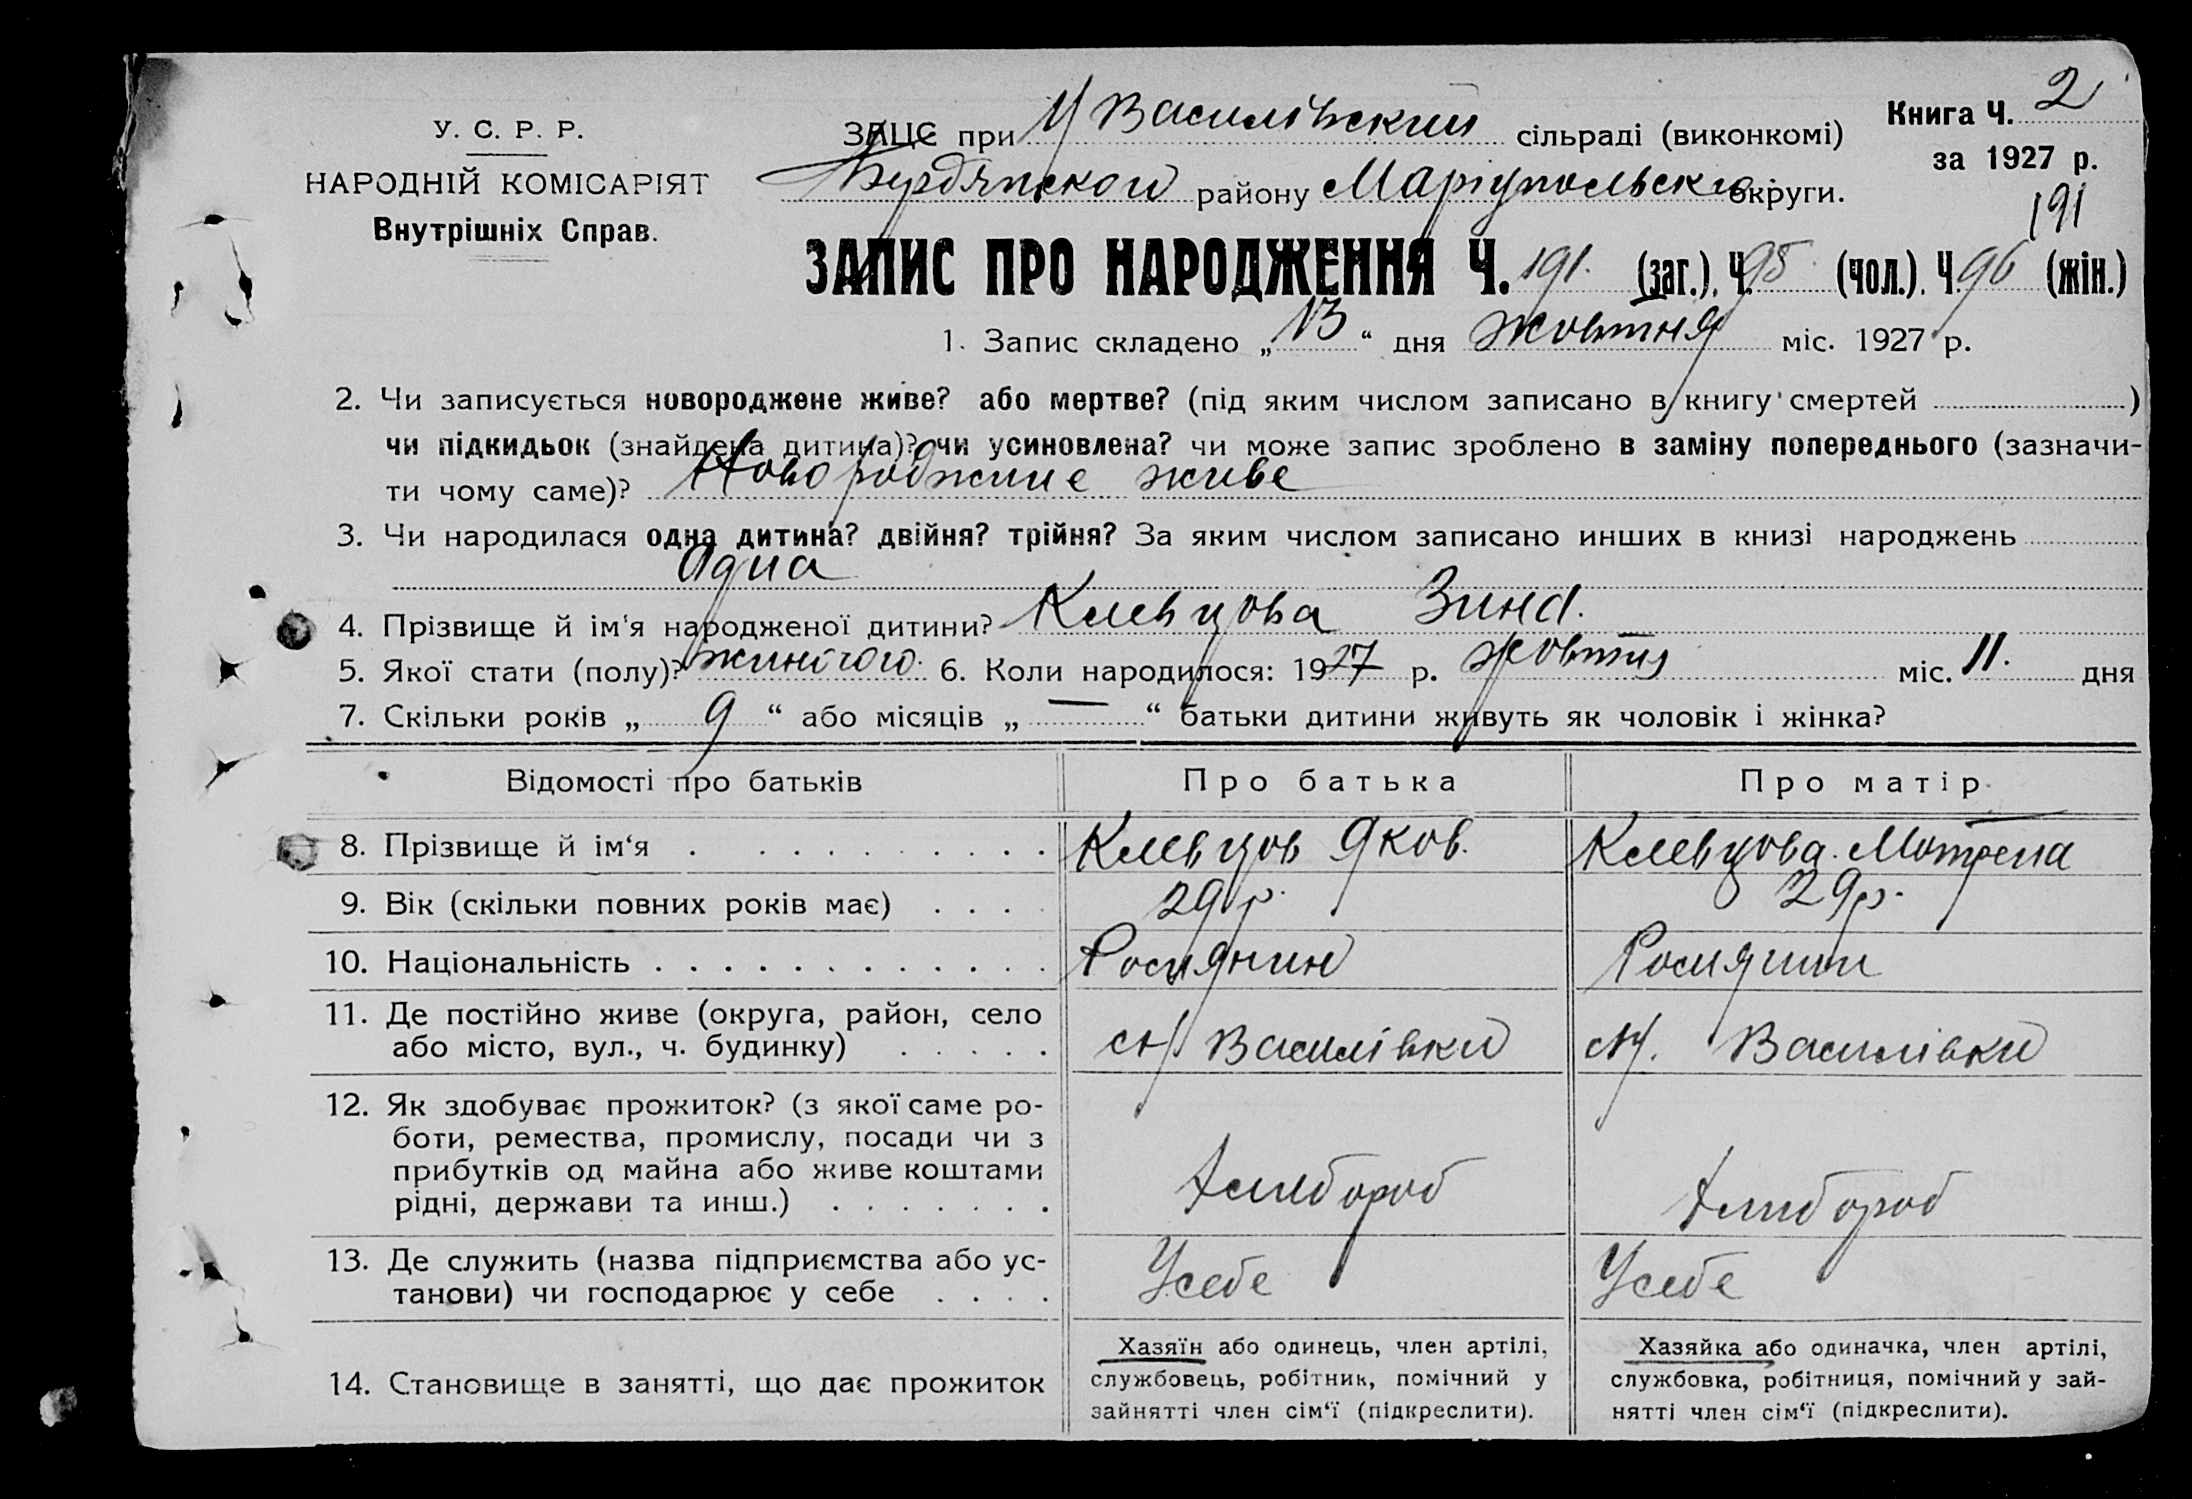 У. С. Р. Р.
НАРОДНІЙ КОМІСАРІЯТ
Внутрішніх Справ.
ЗАЦС при Василівский сільраді (виконкомі)
Бердянского району Маріупольско округи.
Книга Ч. 2
за 1927 р.
191
ЗАПИС ПРО НАРОДЖЕННЯ Ч. 191. (заг.). Ч. 95 (чол.). Ч. 96 (жін.)
1. Запис складено „ 13 “ дня жовтня міс. 1927 р.
2. Чи записується новороджене живе? або мертве? (під яким числом записано в книгу смертей )
чи підкидьок (знайдена дитина)? чи усиновлена? чи може запис зроблено в заміну попереднього (зазначи-
ти чому саме)? Новороджине живе
3. Чи народилася одна дитина? двійня? трійня? За яким числом записано инших в книзі народжень
Одна
4. Прізвище й ім'я народженої дитини? Клевцова Зина.
5. Якої стати (полу)? жиночого. 6. Коли народилося: 1927 р. жовтня міс. 11. дня
7. Скільки років „ 9 “ або місяців „ — “ батьки дитини живуть як чоловік і жінка?
Відомості про батьків Про батька Про матір
8. Прізвище й ім‘я Клевцов Яков. Клевцова Мотрена
9. Вік (скільки повних років має) 29 р. 29 р.
10. Національність Росиянин Росиянин
11. Де постійно живе (округа, район, село
або місто, вул., ч. будинку) Василівки Василівки
12. Як здобуває прожиток? (з якої саме ро-
боти, ремества, промислу, посади чи з
прибутків од майна або живе коштами
рідні, держави та инш.) Хлибороб Хлибороб
13. Де служить (назва підприємства або ус-
танови) чи господарює у себе Усебе Усебе
14. Становище в занятті, що дає прожиток
Хазяїн або одинець, член артілі,
службовець, робітник, помічний у
зайнятті член сім‘ї (підкреслити).
Хазяйка або одиначка, член артілі,
службовка, робітниця, помічний у зай-
нятті член сім‘ї (підкреслити).